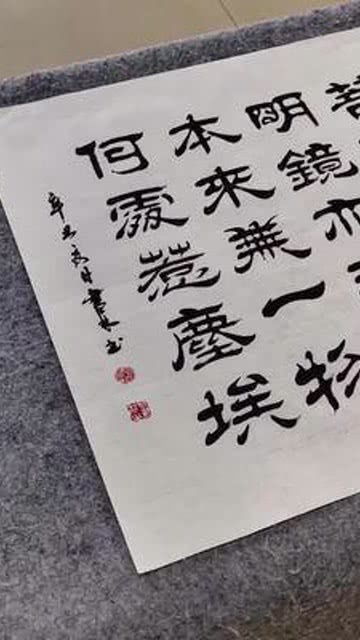 菩
明鏡亦
本來無一物
何處惹塵埃
辛丑